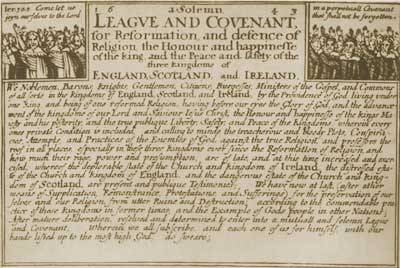 Ier. 50.5 Come let us joyn our selves to the Lord
1 6 a Solemn 4 3
in a perpetuall Covenant that shall not be forgotten.
LEAGVE AND COVENANT,
for Reformation, and defence of
Religion, the Honour and happinesse
of the king, and the Peace and safety of the
three kingdoms of
ENGLAND, SCOTLAND, and IRELAND.
We Noblemen, Barons, knights, Gentlemen, Citizens, Burgesses, Ministers of the Gospel, and Commons
of all sorts in the kingdoms of England, Scotland, and Ireland, by the Providence of God living under
one King, and being of one reformed Religion, having before our eyes the Glory of God, and the advance-
ment of the kingdome of our Lord and Saviour Iesus Christ, the Honour and happinesse of the kings Ma-
iesty and his posterity, and the true publique Liberty, Safety, and Peace of the kingdoms, wherein every
ones private Condition is included, and calling to minde the treacherous and bloody Plots, Conspira-
cies, Attempts, and Practices of the Enemies of God, against the true Religion, and professors ther-
eof in all places, especially in these three kingdoms ever since the Reformation of Religion, and
how much their rage, power and presumption, are of late, and at this time increased and exer-
cised; whereof the deplorable state of the Church and kingdom of Ireland, the distressed esta-
te of the Church and kingdom of England, and the dangerous estate of the Church and king-
dom of Scotland, are present and publique Testimonies; We have now at last, after other
means of Supplication, Remonstrance, Protestations, and Sufferings, for the preservation of our
selves and our Religion, from utter Ruine and Destruction; according to the commendable pra-
ctice of these kingdoms in former times, and the Example of Gods people in other Nations;
After mature deliberation, resolved and determined to enter into a mutuall and solemn League
and Covenant, Wherein we all subscribe, and each one of us for himself, with our
hands lifted up to the most high God, do sweare;